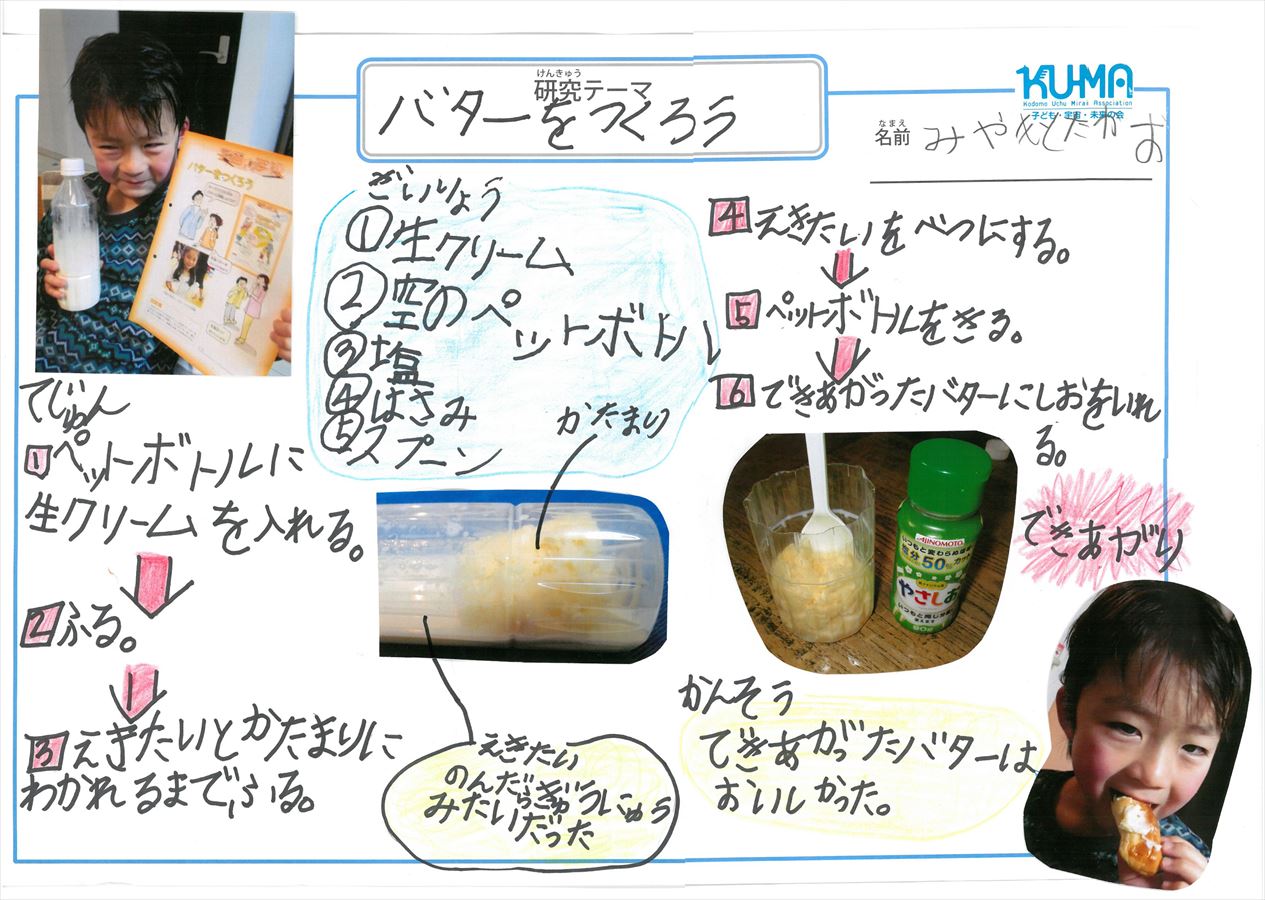 けんきゅう
研究テーマ
バターをつくろう
KU-MA
Kodomo Uchu Mirai Association
子ども・宇宙・未来の会
なまえ
名前 みやもとたかお
バターをつくろう
ざいりょう
①生クリーム
②空のペットボトル
③塩
④はさみ
⑤スプーン
てじゅん
1 ペットボトルに
生クリームを入れる。
2 ふる。
3 えきたいとかたまりに
わかれるまでふる。
かたまり
えきたい
のんだらぎゅうにゅう
みたいだった
4 えきたいをべつにする。
5 ペットボトルをきる。
6 できあがったバターにしおをいれ
る。
AJINOMOTO
いつもと変わらぬ
塩分50%カット
やさしお
90g
できあがり
かんそう
できあがったバターは
おいしかった。